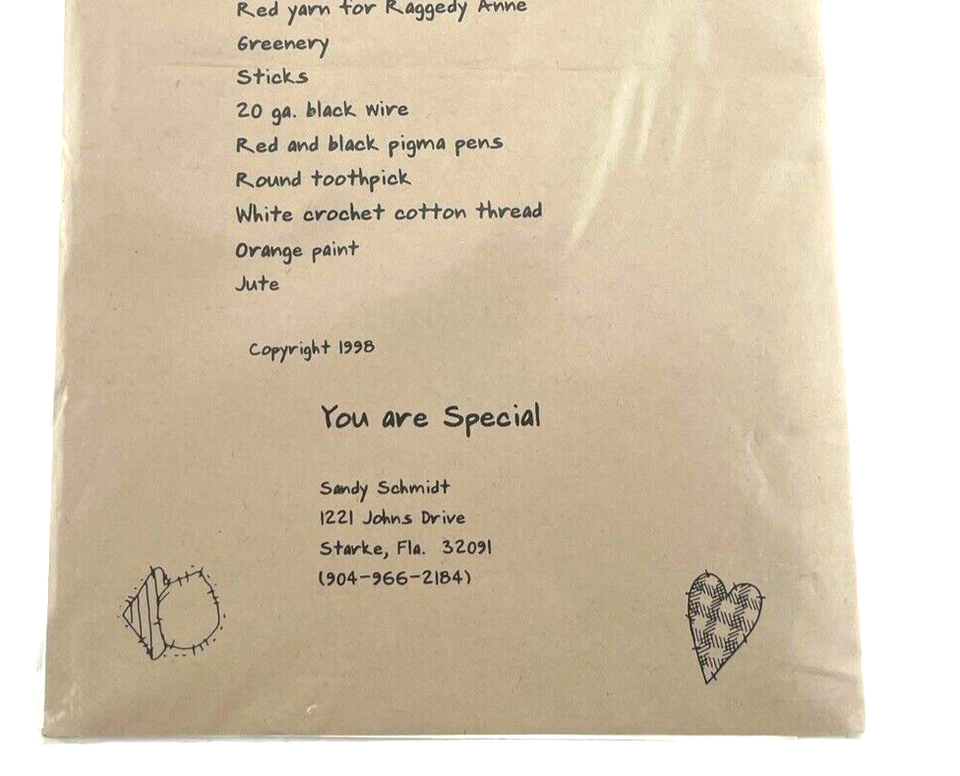 Red yarn for Raggedy Anne
Greenery
Sticks
20 ga. black wire
Red and black pigma pens
Round toothpick
White crochet cotton thread
Orange paint
Jute
Copyright 1998
You are Special
Sandy Schmidt
1221 Johns Drive
Starke, Fla. 32091
(904-966-2184)